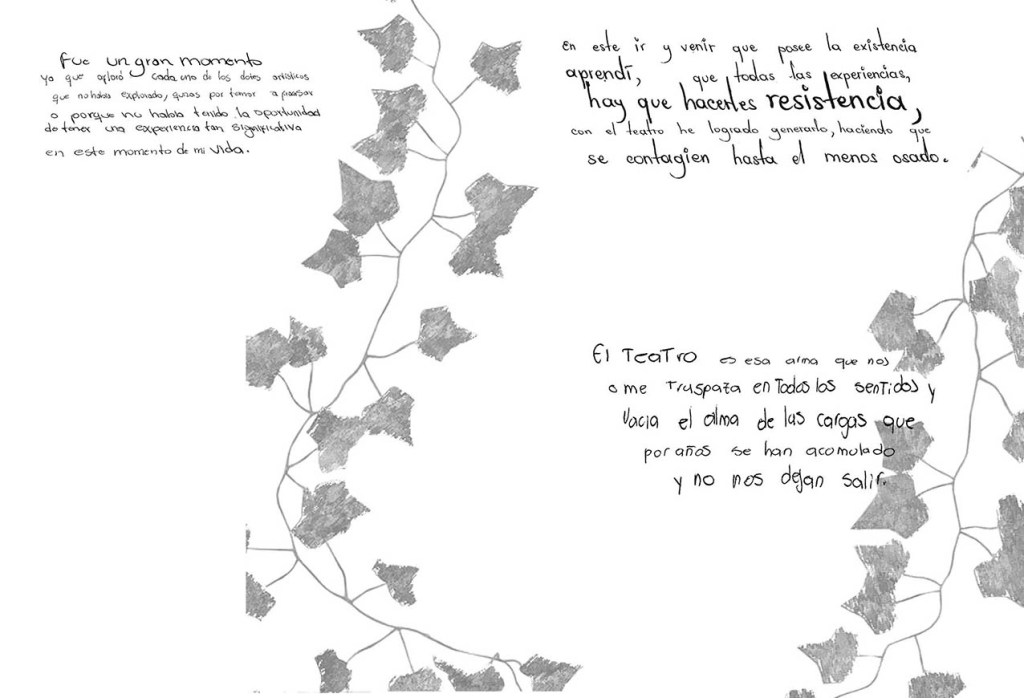 Fue un gran momento
ya que afloró cada uno de los dotes artísticos
que no había explorado, quizas por temor a fracasar
o porque no había tenido la oportunidad
de tener una experiencia tan significativa
en este momento de mi vida.
En este ir y venir que posee la existencia
aprendí, que todas las experiencias,
hay que hacerles resistencia,
con el teatro he logrado generarlo, haciendo que
se contagien hasta el menos osado.
El Teatro es esa alma que nos
o me traspaza en todos los sentidos y
vacia el alma de las cargas que
por años se han acomulado
y no nos dejan salir.